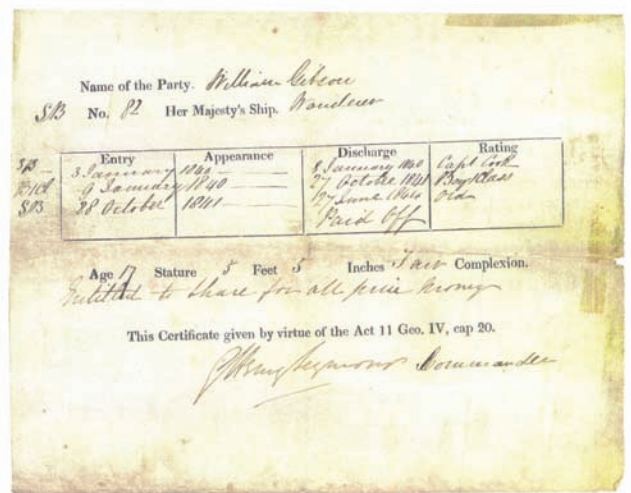 Name of the Party. William Gibson
SB No. 82 Her Majesty's Ship. Wanderer
Entry Appearance Discharge Rating
SB 3 January 1840 8 January 1840 Capt Cook
9 January 1840 27 October 1841 Boy 1 Class
SB 28 October 1841 19 June 1844 Ord
Paid Off
Age 17 Stature 5 Feet 5 Inches Fair Complexion.
Entitled to share for all prize money
This Certificate given by virtue of the Act 11 Geo. IV, cap 20.
Henry Seymour Commander